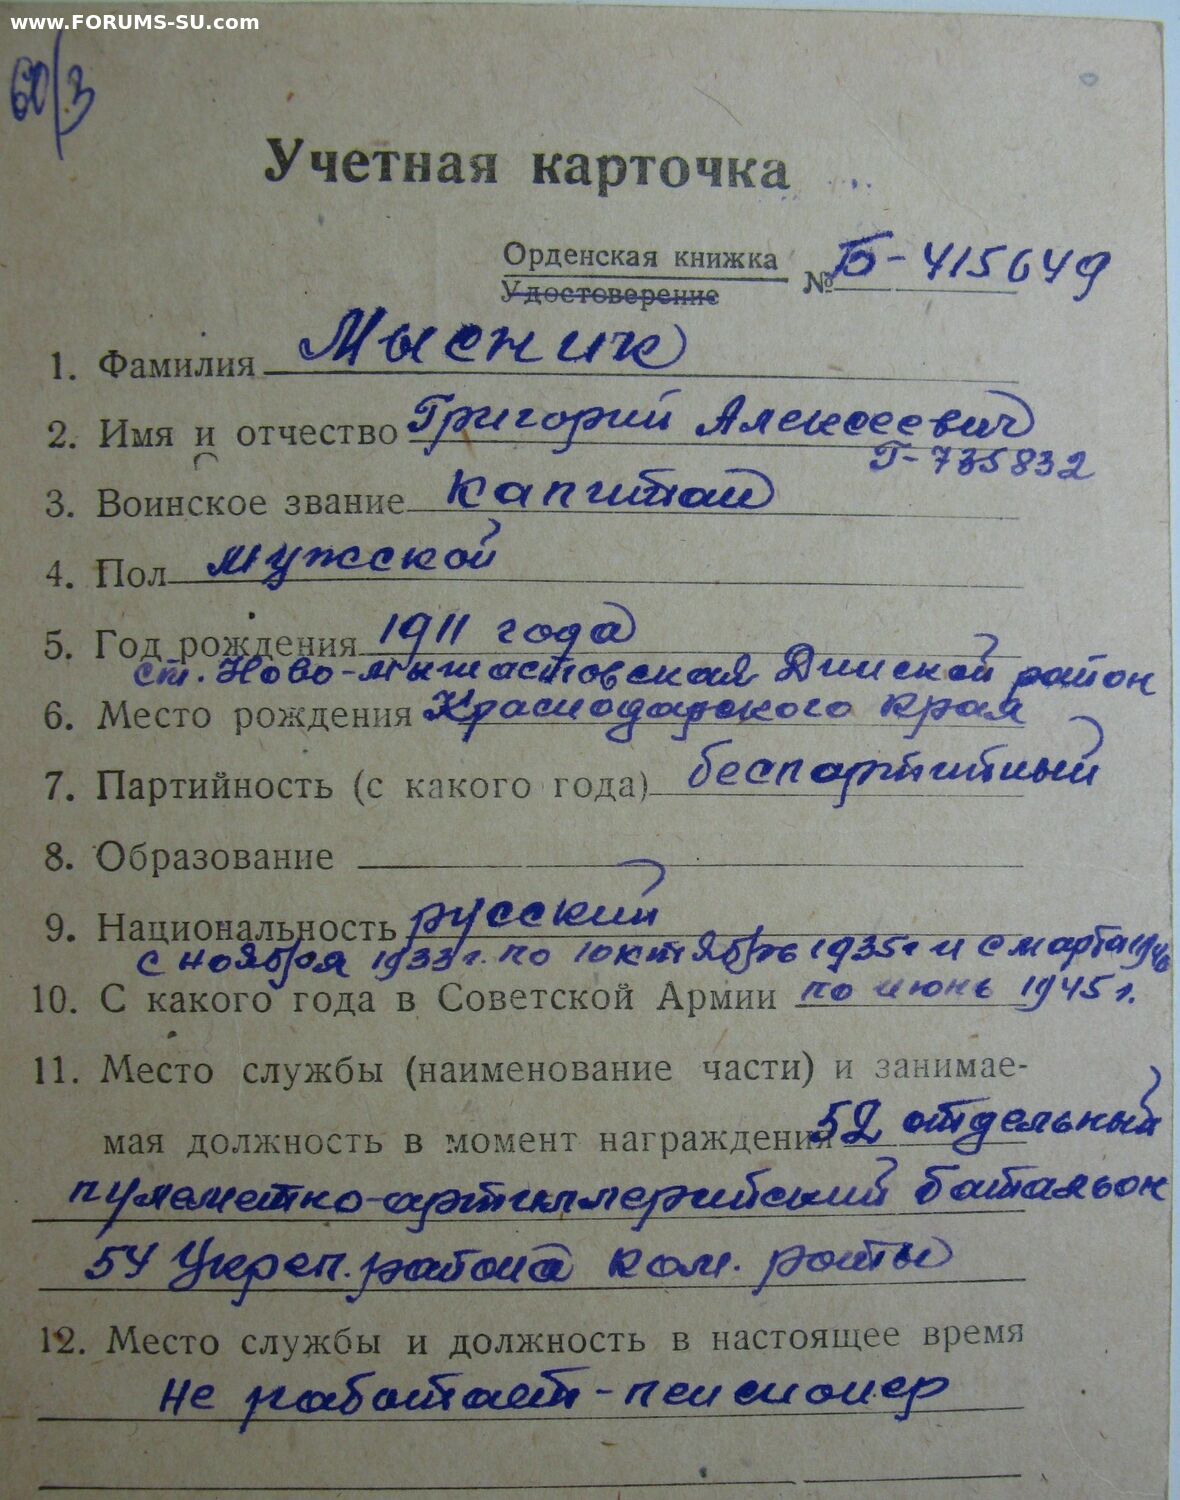 www.FORUMS-SU.com
60/3
Учетная карточка
Орденская книжка № Б-415649
Удостоверение
1. Фамилия Мысник
2. Имя и отчество Григорий Алексеевич
Г-735832
3. Воинское звание капитан
4. Пол мужской
5. Год рождения 1911 года
ст. Ново-мышастовская Динской район
6. Место рождения Краснодарского края
7. Партийность (с какого года) беспартийный
8. Образование
9. Национальность русский
с ноября 1933 г. по октябрь 1935 г и с марта
10. С какого года в Советской Армии по июнь 1945 г.
11. Место службы (наименование части) и занимае-
мая должность в момент награждения 52 отдельный
пулеметно-артиллерийский батальон
54 Укреп. района ком. роты
12. Место службы и должность в настоящее время
не работает - пенсионер